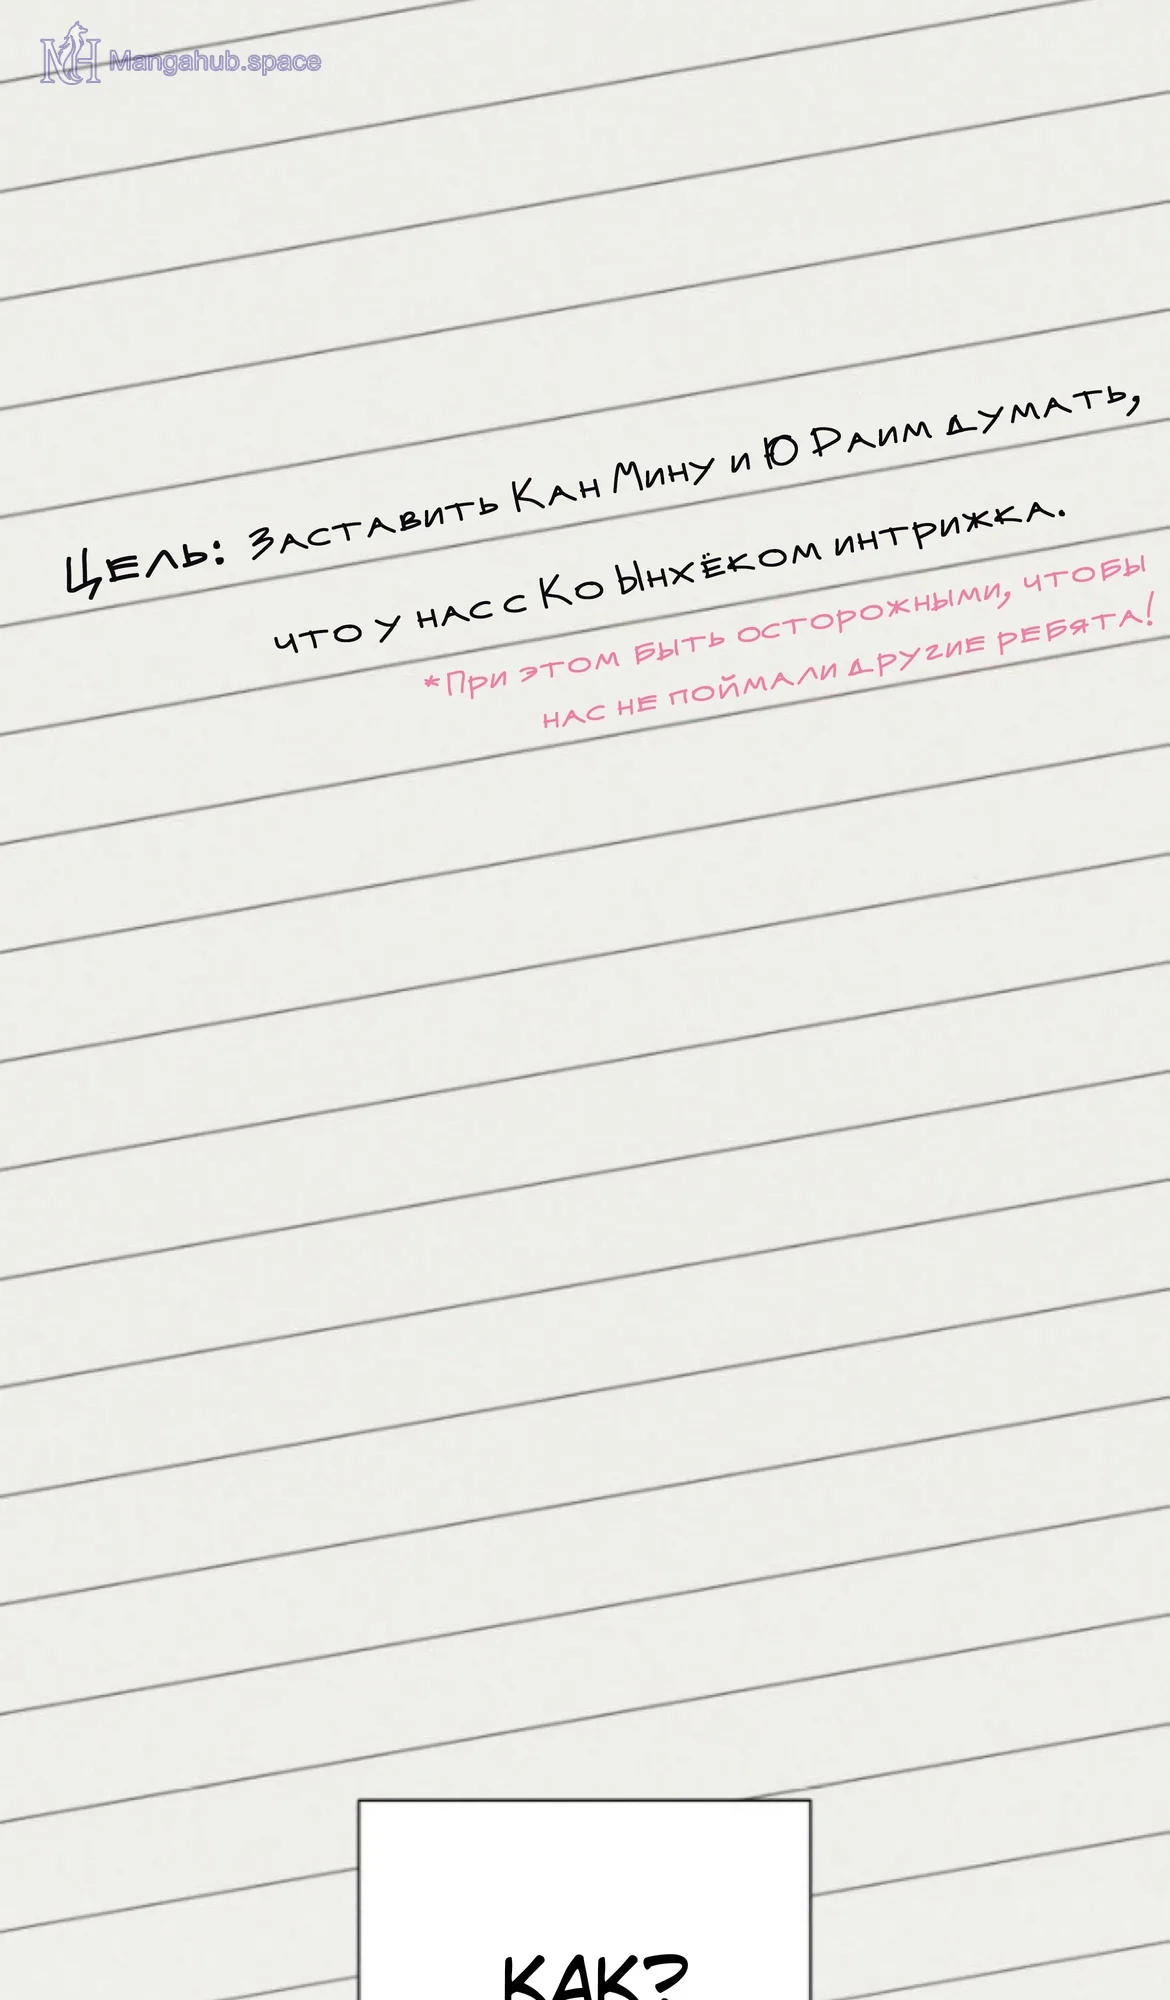 Mangahub.space
Цель: Заставить Кан Мину и Ю Раим думать,
что у нас с Ко Ынхёком интрижка.
*При этом быть осторожными, чтобы
нас не поймали другие ребята!
КАК?